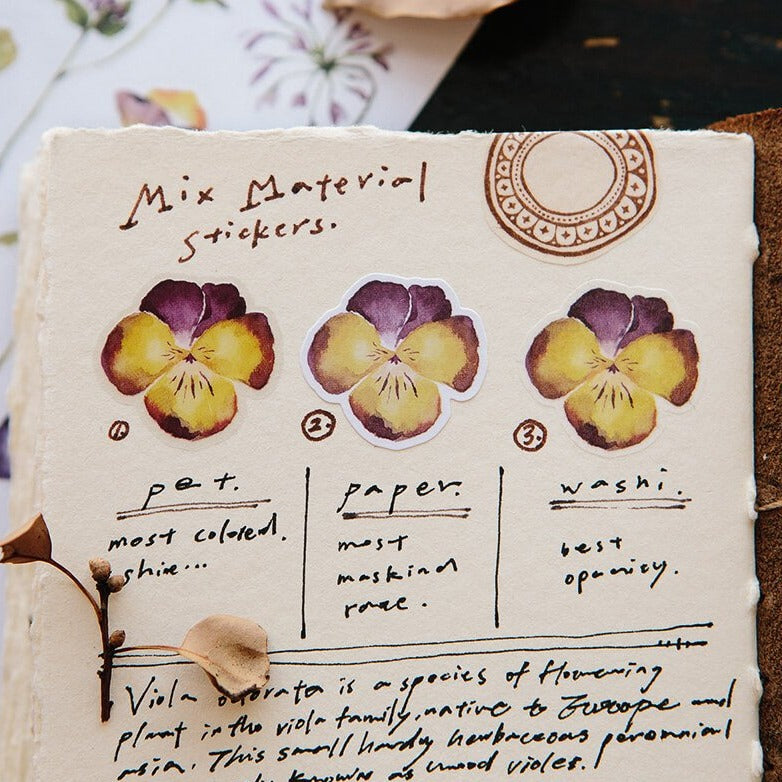 Mix Material
stickers.
1.
2.
3.
pet.
most colored.
shine...
paper.
most
maskind
washi.
best
opacity.
Viola odorata is a species of flowering
plant in the viola family, native to Europe and
asia. This small hardy herbaceous perennial
known as wood violes.